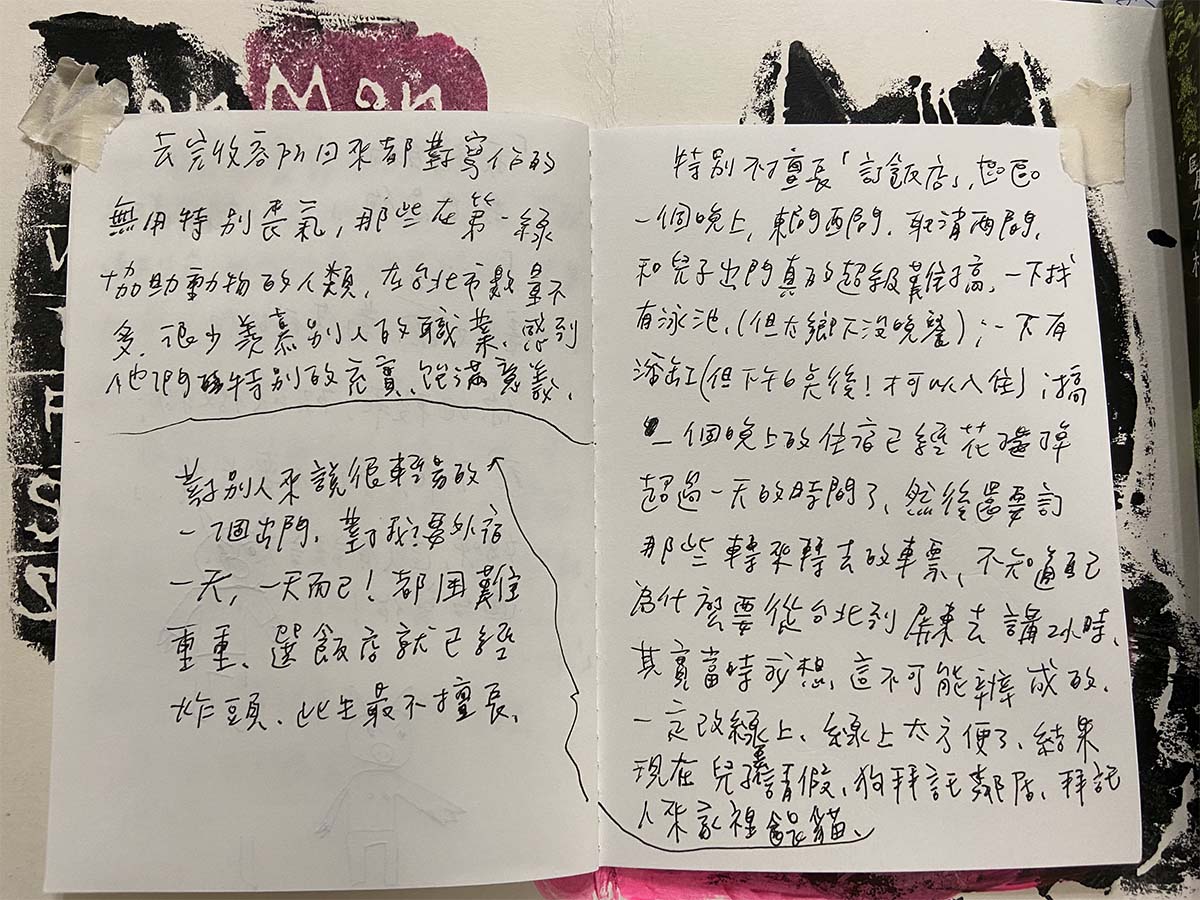 on Mon
去完收容所回來都對寫作的
無用特別喪氣，那些在第一線
協助動物的人類，在台北市數量不
多，很少羨慕別人的職業，感到
他們特別的充實、飽滿意義、
對別人來說很輕易的
一個出門，對我要外宿
一天，一天而已！都困難
重重、選飯店就已經
炸頭、此生最不擅長、
特別不擅長「訂飯店」，區區
一個晚上，東問西問，取消兩間，
和兒子出門真的超級難搞，一下找
有泳池，(但太鄉下沒晚餐)；一下有
浴缸(但下午6點後！才可以入住)；搞
一個晚上的住宿已經花掉
超過一天的時間了，然後還要訂
那些轉來轉去的車票，不知道自己
為什麼要從台北到屏東去講2小時、
其實當時我想，這不可能辦成的，
一定改線上、線上太方便了、結果
現在兒子請假、狗拜託鄰居、拜託
人來家裡餵貓、